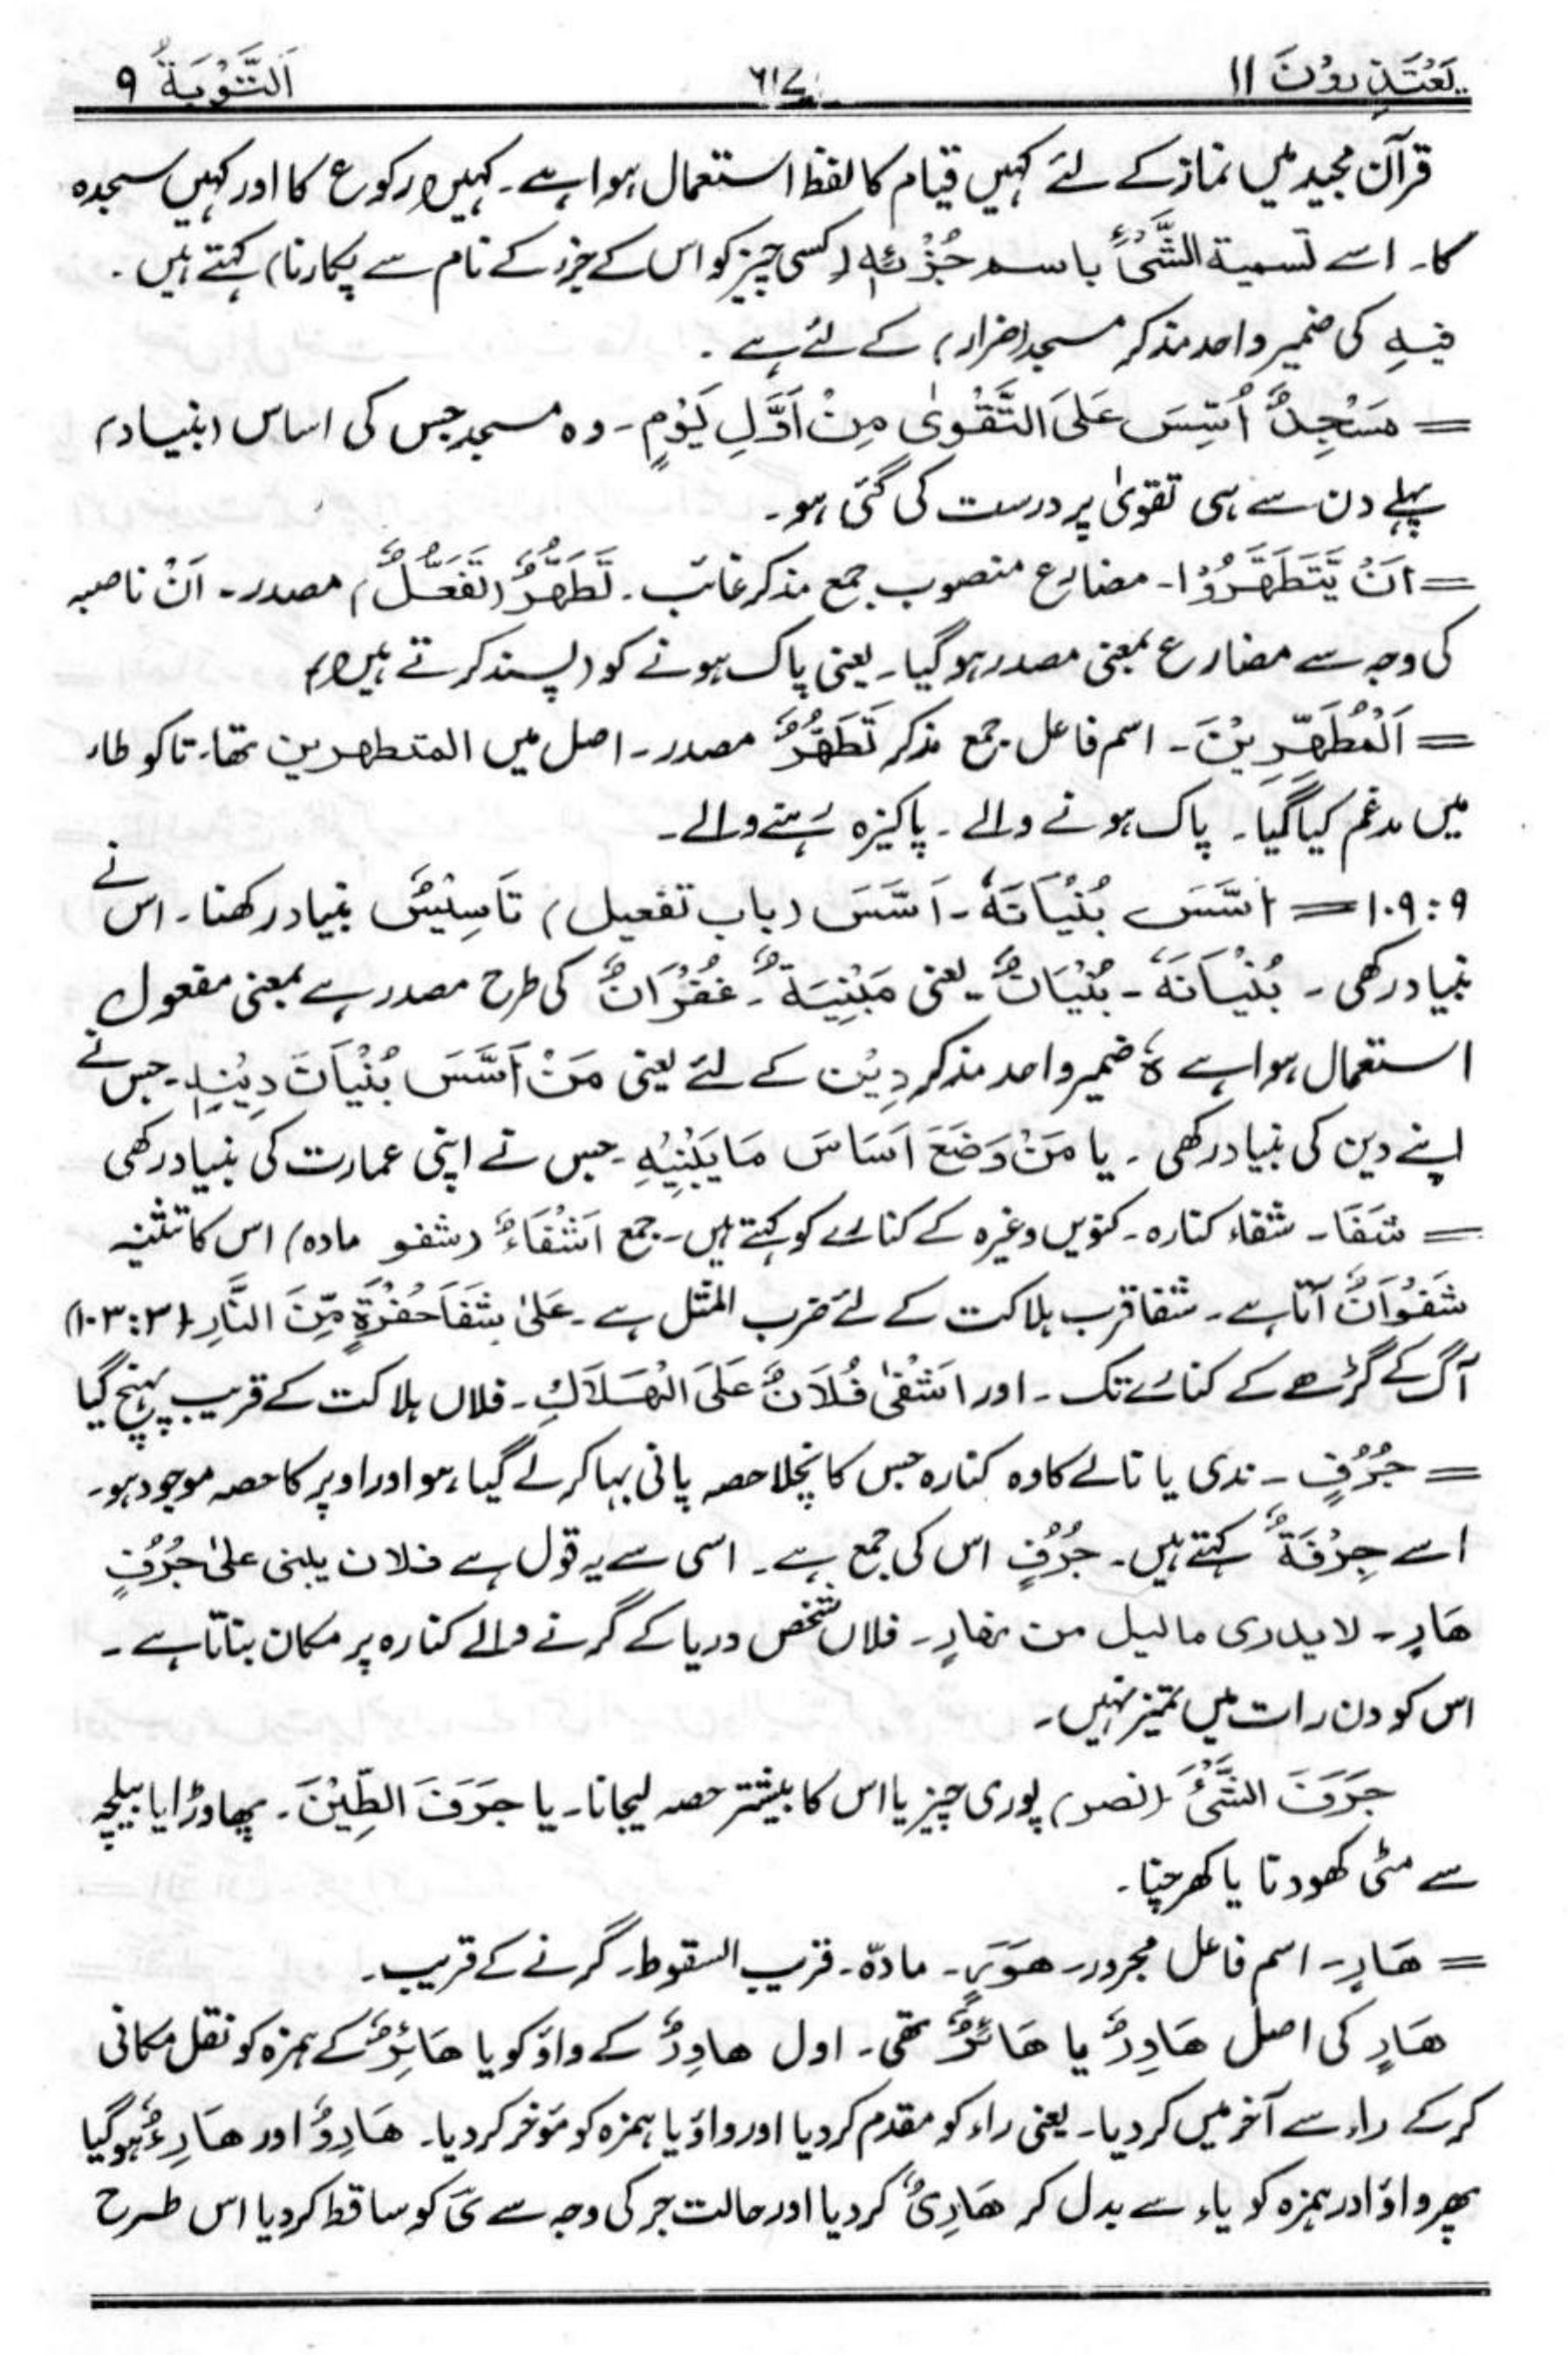 یَعْتَذِرُوْنَ ۱۱ ۶۱۷ اَلتَّوْبَۃُ ۹
قرآن مجید میں نماز کے لئے کہیں قیام کا لفظ استعمال ہوا ہے۔ کہیں رکوع کا اور کہیں سجدہ
کا۔ اسے تسمیۃ الشَّیْءِ باسم جُزْئِہٖ (کسی چیز کو اس کے جزء کے نام سے پکارنا) کہتے ہیں۔
فِیْہِ کی ضمیر واحد مذکر مسجد (ضرار) کے لئے ہے۔
= مَسْجِدٌ اُسِّسَ عَلَی التَّقْوٰی مِنْ اَوَّلِ یَوْمٍ۔ وہ مسجد جس کی اساس (بنیاد)
پہلے دن سے ہی تقویٰ پر درست کی گئی ہو۔
= اَنْ یَّتَطَھَّرُوْا۔ مضارع منصوب جمع مذکر غائب۔ تَطَھُّرٌ (تَفَعُّلٌ) مصدر۔ اَنْ ناصبہ
کی وجہ سے مضارع بمعنی مصدر ہو گیا۔ یعنی پاک ہونے کو (پسند کرتے ہیں)
= اَلْمُطَّھِّرِیْنَ۔ اسم فاعل جمع مذکر تَطَھُّرٌ مصدر۔ اصل میں المتطھرین تھا۔ تا کو طاء
میں مدغم کیا گیا۔ پاک ہونے والے۔ پاکیزہ رہنے والے۔
۹:۱۰۹ = اَسَّسَ بُنْیَانَہٗ۔ اَسَّسَ (باب تفعیل) تَاسِیْسٌ بنیاد رکھنا۔ اس نے
بنیاد رکھی۔ بُنْیَانَہٗ۔ بُنْیَانٌ۔ یعنی مَبْنِیَۃٌ۔ غُفْرَانٌ کی طرح مصدر ہے بمعنی مفعول
استعمال ہوا ہے ہٗ ضمیر واحد مذکر دِیْن کے لئے یعنی مَنْ اَسَّسَ بُنْیَانَ دِیْنِہٖ۔ جس نے
اپنے دین کی بنیاد رکھی۔ یا مَنْ وَضَعَ اَسَاسَ مَا یَبْنِیْہِ۔ جس نے اپنی عمارت کی بنیاد رکھی
= شَفَا۔ شفاء کنارہ۔ کنویں وغیرہ کے کنارے کو کہتے ہیں۔ جمع اَشْفَاءٌ (شفو مادہ) اس کا تثنیہ
شَفْوَانُ آتا ہے۔ شفا قرب ہلاکت کے لئے ضرب المثل ہے۔ عَلٰی شَفَا حُفْرَۃٍ مِّنَ النَّارِ (۳:۱۰۳)
آگ کے گڑھے کے کنارے تک۔ اور اَشْفٰی فُلَانٌ عَلَی الْھَلَاکِ۔ فلاں ہلاکت کے قریب پہنچ گیا
= جُرُفٍ۔ ندی یا نالے کا وہ کنارہ جس کا نچلا حصہ پانی بہا کر لے گیا ہو اور اوپر کا حصہ موجود ہو۔
اسے جِرْفَۃٌ کہتے ہیں۔ جُرُفٍ اس کی جمع ہے۔ اسی سے یہ قول ہے فلان یبنی علیٰ جُرُفٍ
ھَارٍ۔ لا یدری ما لیل من نھارٍ۔ فلاں شخص دریا کے گرنے والے کنارہ پر مکان بناتا ہے۔
اس کو دن رات میں تمیز نہیں۔
جَرَفَ الشَّیْءَ (نصر) پوری چیز یا اس کا بیشتر حصہ لیجانا۔ یا جَرَفَ الطِّیْنَ۔ پھاوڑا یا بیلچہ
سے مٹی کھودنا یا کھرچنا۔
= ھَارٍ۔ اسم فاعل مجرور۔ ھَوَرٍ۔ مادّہ۔ قریب السقوط۔ گرنے کے قریب۔
ھَارٍ کی اصل ھَاوِرٌ یا ھَائِرٌ تھی۔ اول ھاوِرٌ کے واؤ کو یا ھَائِرٌ کے ہمزہ کو نقل مکانی
کر کے راء سے آخر میں کر دیا۔ یعنی راء کو مقدم کر دیا اور واؤ یا ہمزہ کو مؤخر کر دیا۔ ھَارِوٌ اور ھَارِءٌ ہو گیا
پھر واؤ اور ہمزہ کو یاء سے بدل کر ھَارِیٌ کر دیا اور حالت جر کی وجہ سے یَ کو ساقط کر دیا اس طرح